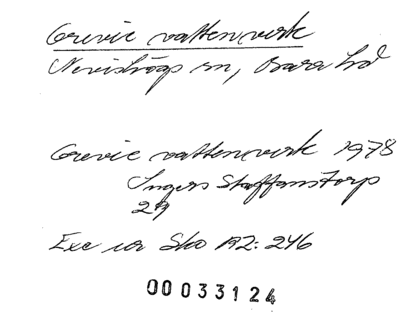 Grevie vattenverk
Nevishögs sn, Bara hd
Grevie vattenverk 1978
Ingers Staffanstorp
Exc ur Sko A2: 246
00033124